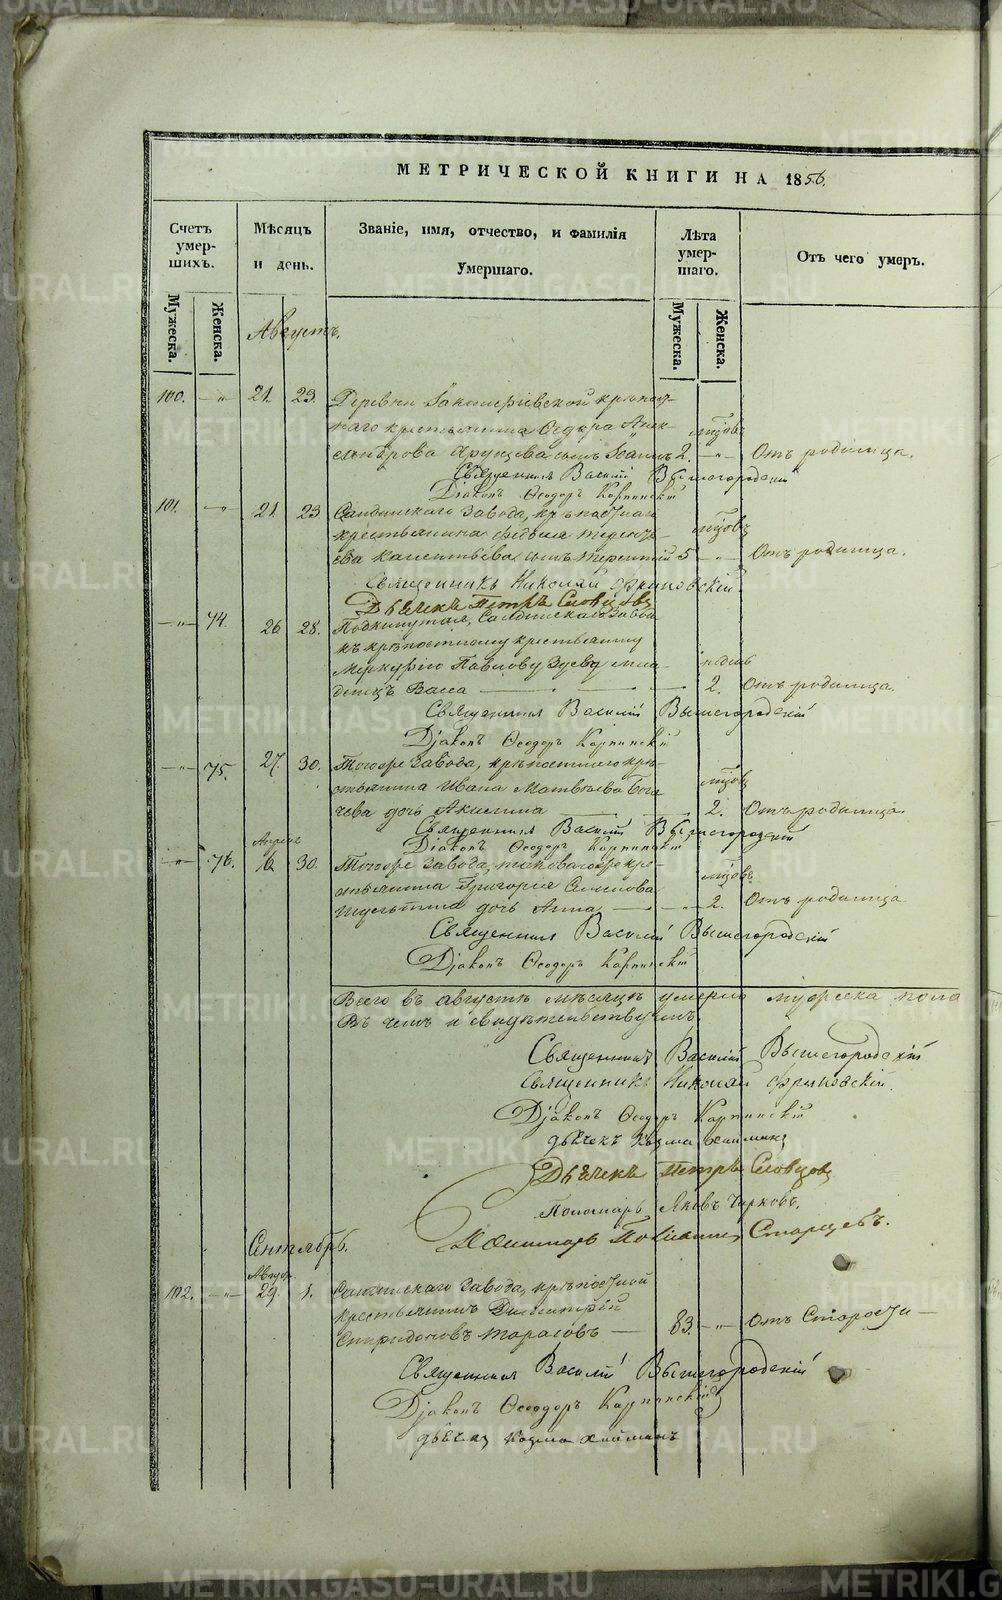 МЕТРИЧЕСКОЙ КНИГИ НА 1856.
Счетъ умер-шихъ.
Мѣсяцъ и день.
Званіе, имя, отчество, и фамилія Умершаго.
Лѣта умер-шаго.
Отъ чего умеръ.
Мужеска. Женска.
Мужеска. Женска.
Августъ.
100. 21. 23. Деревни крѣпост-
наго крестьянина Ѳедора Алек-
сынъ Іоаннъ 2. Отъ родимца.
Священникъ Василій Вышегородскій
Діаконъ Ѳеодоръ Карпинскій
101. 21 23 Салдинскаго завода, крѣпостнаго
крестьянина
сынъ Терентій 5 Отъ родимца.
Священникъ Николай Фрыновскій
Дьячекъ Петръ Словцовъ
74. 26 28. Подкинутая, Салдинскаго завода
къ крѣпостному крестьянину
Меркурію Павлову Зуеву мла-
денецъ Васса недѣль 2. Отъ родимца.
Священникъ Василій Вышегородскій
Діаконъ Ѳеодоръ Карпинскій
75. 27. 30. Тогоже завода, крѣпостнаго кре-
стьянина Ивана Матвѣева
дочь Акилина 2. Отъ родимца.
Священникъ Василій Вышегородскій
Діаконъ Ѳеодоръ Карпинскій
76. 30. Тогоже завода, таковагоже кре-
стьянина Григорія
дочь Анна 2. Отъ родимца
Священникъ Василій Вышегородскій
Діаконъ Ѳеодоръ Карпинскій
Всего въ августѣ мѣсяцѣ умерло мужеска пола
Въ чемъ и свидѣтельствуемъ.
Священникъ Василій Вышегородскій
Священникъ Николай Фрыновскій.
Діаконъ Ѳеодоръ Карпинскій
дьячекъ Козма
Дьячекъ Петръ Словцовъ
Пономарь Яковъ Чирковъ.
Пономарь Старцевъ.
Сентябрь.
Август.
102. 29. 1. Салдинскаго завода, крѣпостной
крестьянинъ Димитрій
Спиридоновъ Тарасовъ 83. Отъ старости
Священникъ Василій Вышегородскій
Діаконъ Ѳеодоръ Карпинскій
дьячекъ Козма
METRIKI.GASO-URAL.RU